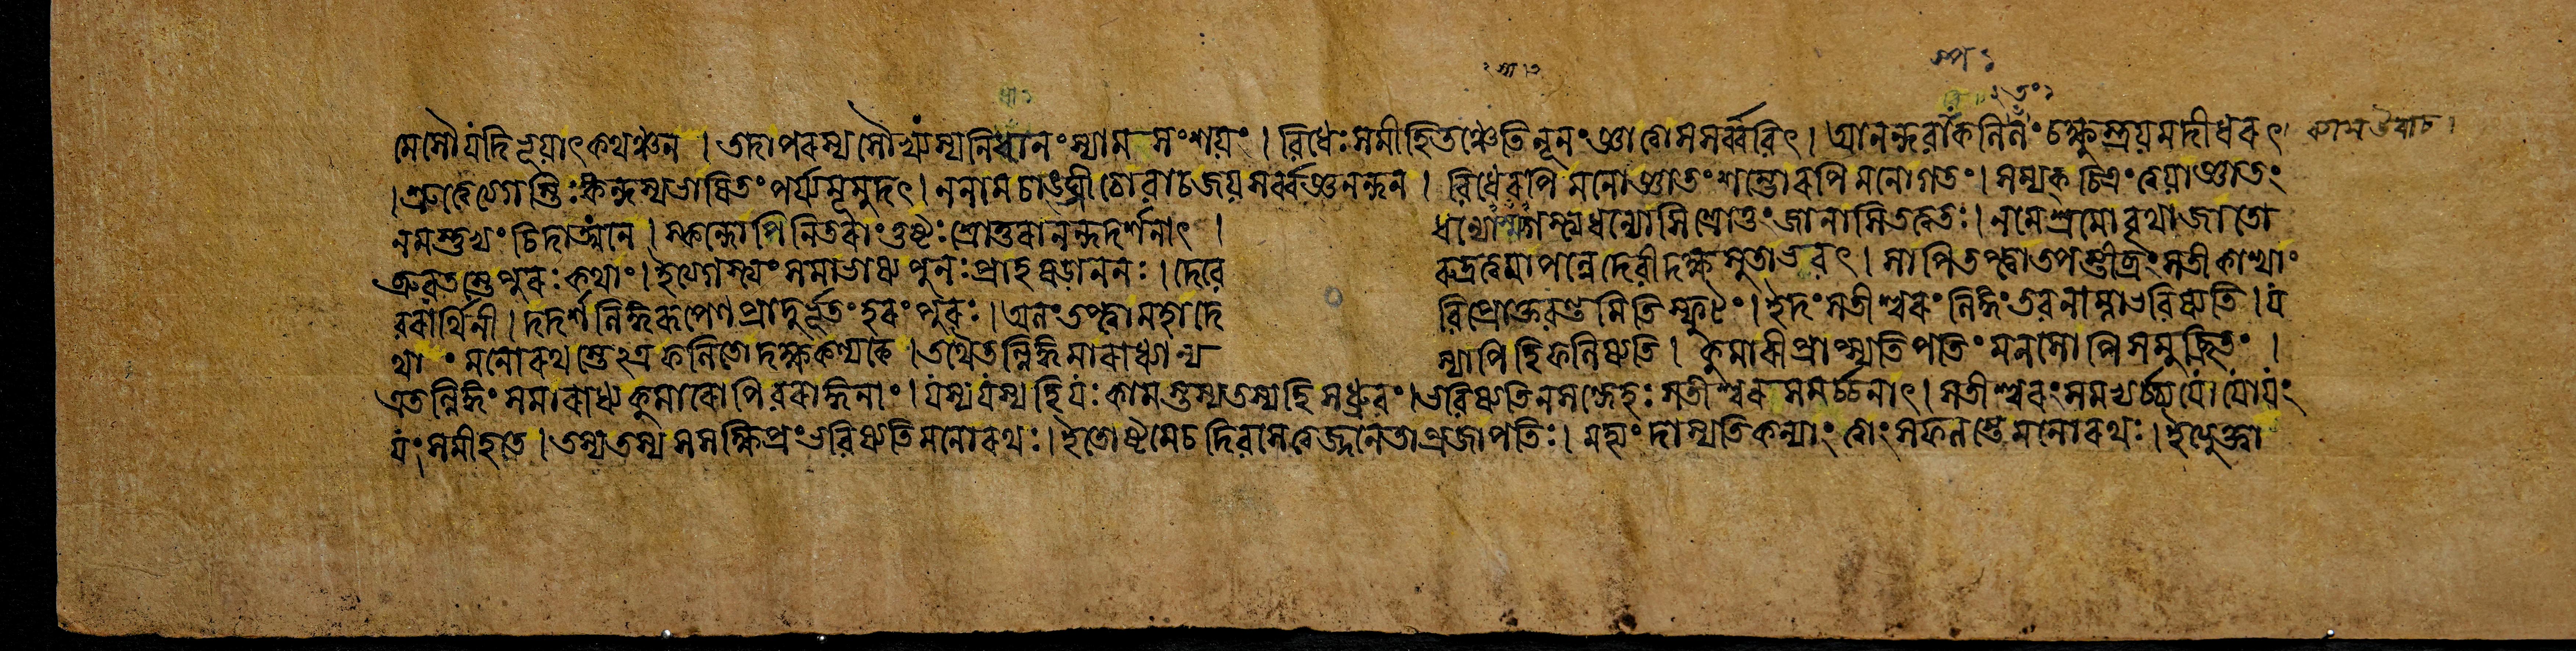 মেসৌ যদি ভূয়াৎ কথঞ্চন । তদাপরস্য সৌখ্যস্য নিধানং স্যামসংশয়ং । বিধেঃ সমীহিতঞ্চেতি নূনং জ্ঞাত্বা স সর্ব্ববিৎ । আনন্দবাষ্পকলিলং চক্ষুস্ত্রয়মদীধরৎ
। শ্রুত্বেত্যগস্তিঃ স্কন্দস্য ভাষিতং পর্য্যমূমুদৎ । ননাম চাঙ্ঘ্রী প্রোবাচ জয় সর্ব্বজ্ঞনন্দন । বিধেরপি মনোজ্ঞাতং শম্ভোরপি মনোগতং । সম্যক্ চিত্রং ত্বয়া জ্ঞাতং
নমস্তুভ্যং চিদাত্মনে । স্কন্দোপি নিতরাং তুষ্টঃ শ্রোতুরানন্দদর্শনাৎ । ধন্যোস্যগস্ত্য ধন্যোসি শ্রোতুং জানাসি তত্ত্বতঃ । ন মে শ্রমো বৃথা জাতো
ব্রুবতস্তে পুরঃ কথাং । ইত্যগস্ত্যং সমাভাষ্য পুনঃ প্রাহ ষড়াননঃ । দেবে রুদ্রত্বমাপন্নে দেবী দক্ষসুতাভবৎ । সাপি তপ্ত্বা তপস্তীব্রং সতী কাশ্যাং
বরার্থিনী । দদর্শ লিঙ্গরূপেণ প্রাদুর্ভূতং হরং পুরঃ । অলং তপ্ত্বা মহাদেবি প্রোক্তবন্তমিতি স্ফুটং । ইদং সতীশ্বরং লিঙ্গং তব নাম্না ভবিষ্যতি । য
থা মনোরথস্তেঽত্র ফলিতো দক্ষকন্যকে । তথৈতল্লিঙ্গমারাধ্যান্যস্যাপি হি ফলিষ্যতি । কুমারী প্রাপ্স্যতি পতিং মনসোপি সমুচ্ছ্রিতং ।
এতল্লিঙ্গং সমারাধ্য কুমারোপি বরাঙ্গনাং । যস্য যস্য হি যঃ কামস্তস্য তস্য হি স ধ্রুবং । ভবিষ্যতি ন সন্দেহঃ সতীশ্বরসমর্চ্চনাৎ । সতীশ্বরং সমভ্যর্চ্চ্য যো যো যং
যং সমীহতে । তস্য তস্য স স ক্ষিপ্রং ভবিষ্যতি মনোরথঃ । ইতোষ্টমে চ দিবসে ত্বজ্জনেতা প্রজাপতিঃ । মহ্যং দাস্যতি কন্যাং ত্বাং সফলস্তে মনোরথঃ । ইত্যুক্ত্বা